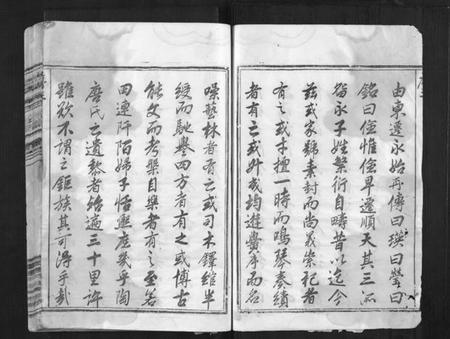 由東遷永始再傳曰瑛曰瑩曰
銘曰佺惟佺早遷順天其三派
裔永子姓繁衍自疇昔以迄今
茲或家號素封而尚義崇祀者
有之或才擅一時而鳴琴奏績
者有之或外或均遊黌序而名
噪藝林者有之或司木鐸綰半
綬而馳譽四方者有之或博古
能文而考槃自樂者有之至若
田連阡陌婦子恬熙庶幾乎陶
唐氏之遺黎者殆遍三十里許
雖欲不謂之鉅族其可得乎哉